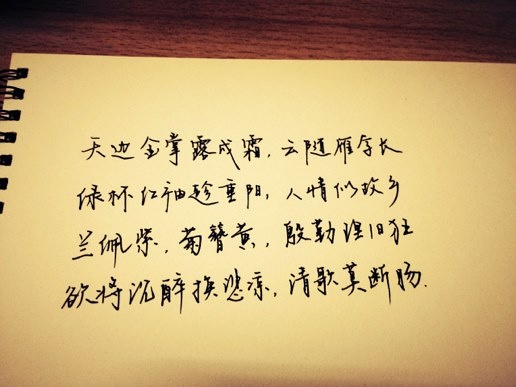 天边金掌露成霜，云随雁字长
绿杯红袖趁重阳，人情似故乡
兰佩紫，菊簪黄，殷勤理旧狂
欲将沉醉换悲凉，清歌莫断肠.